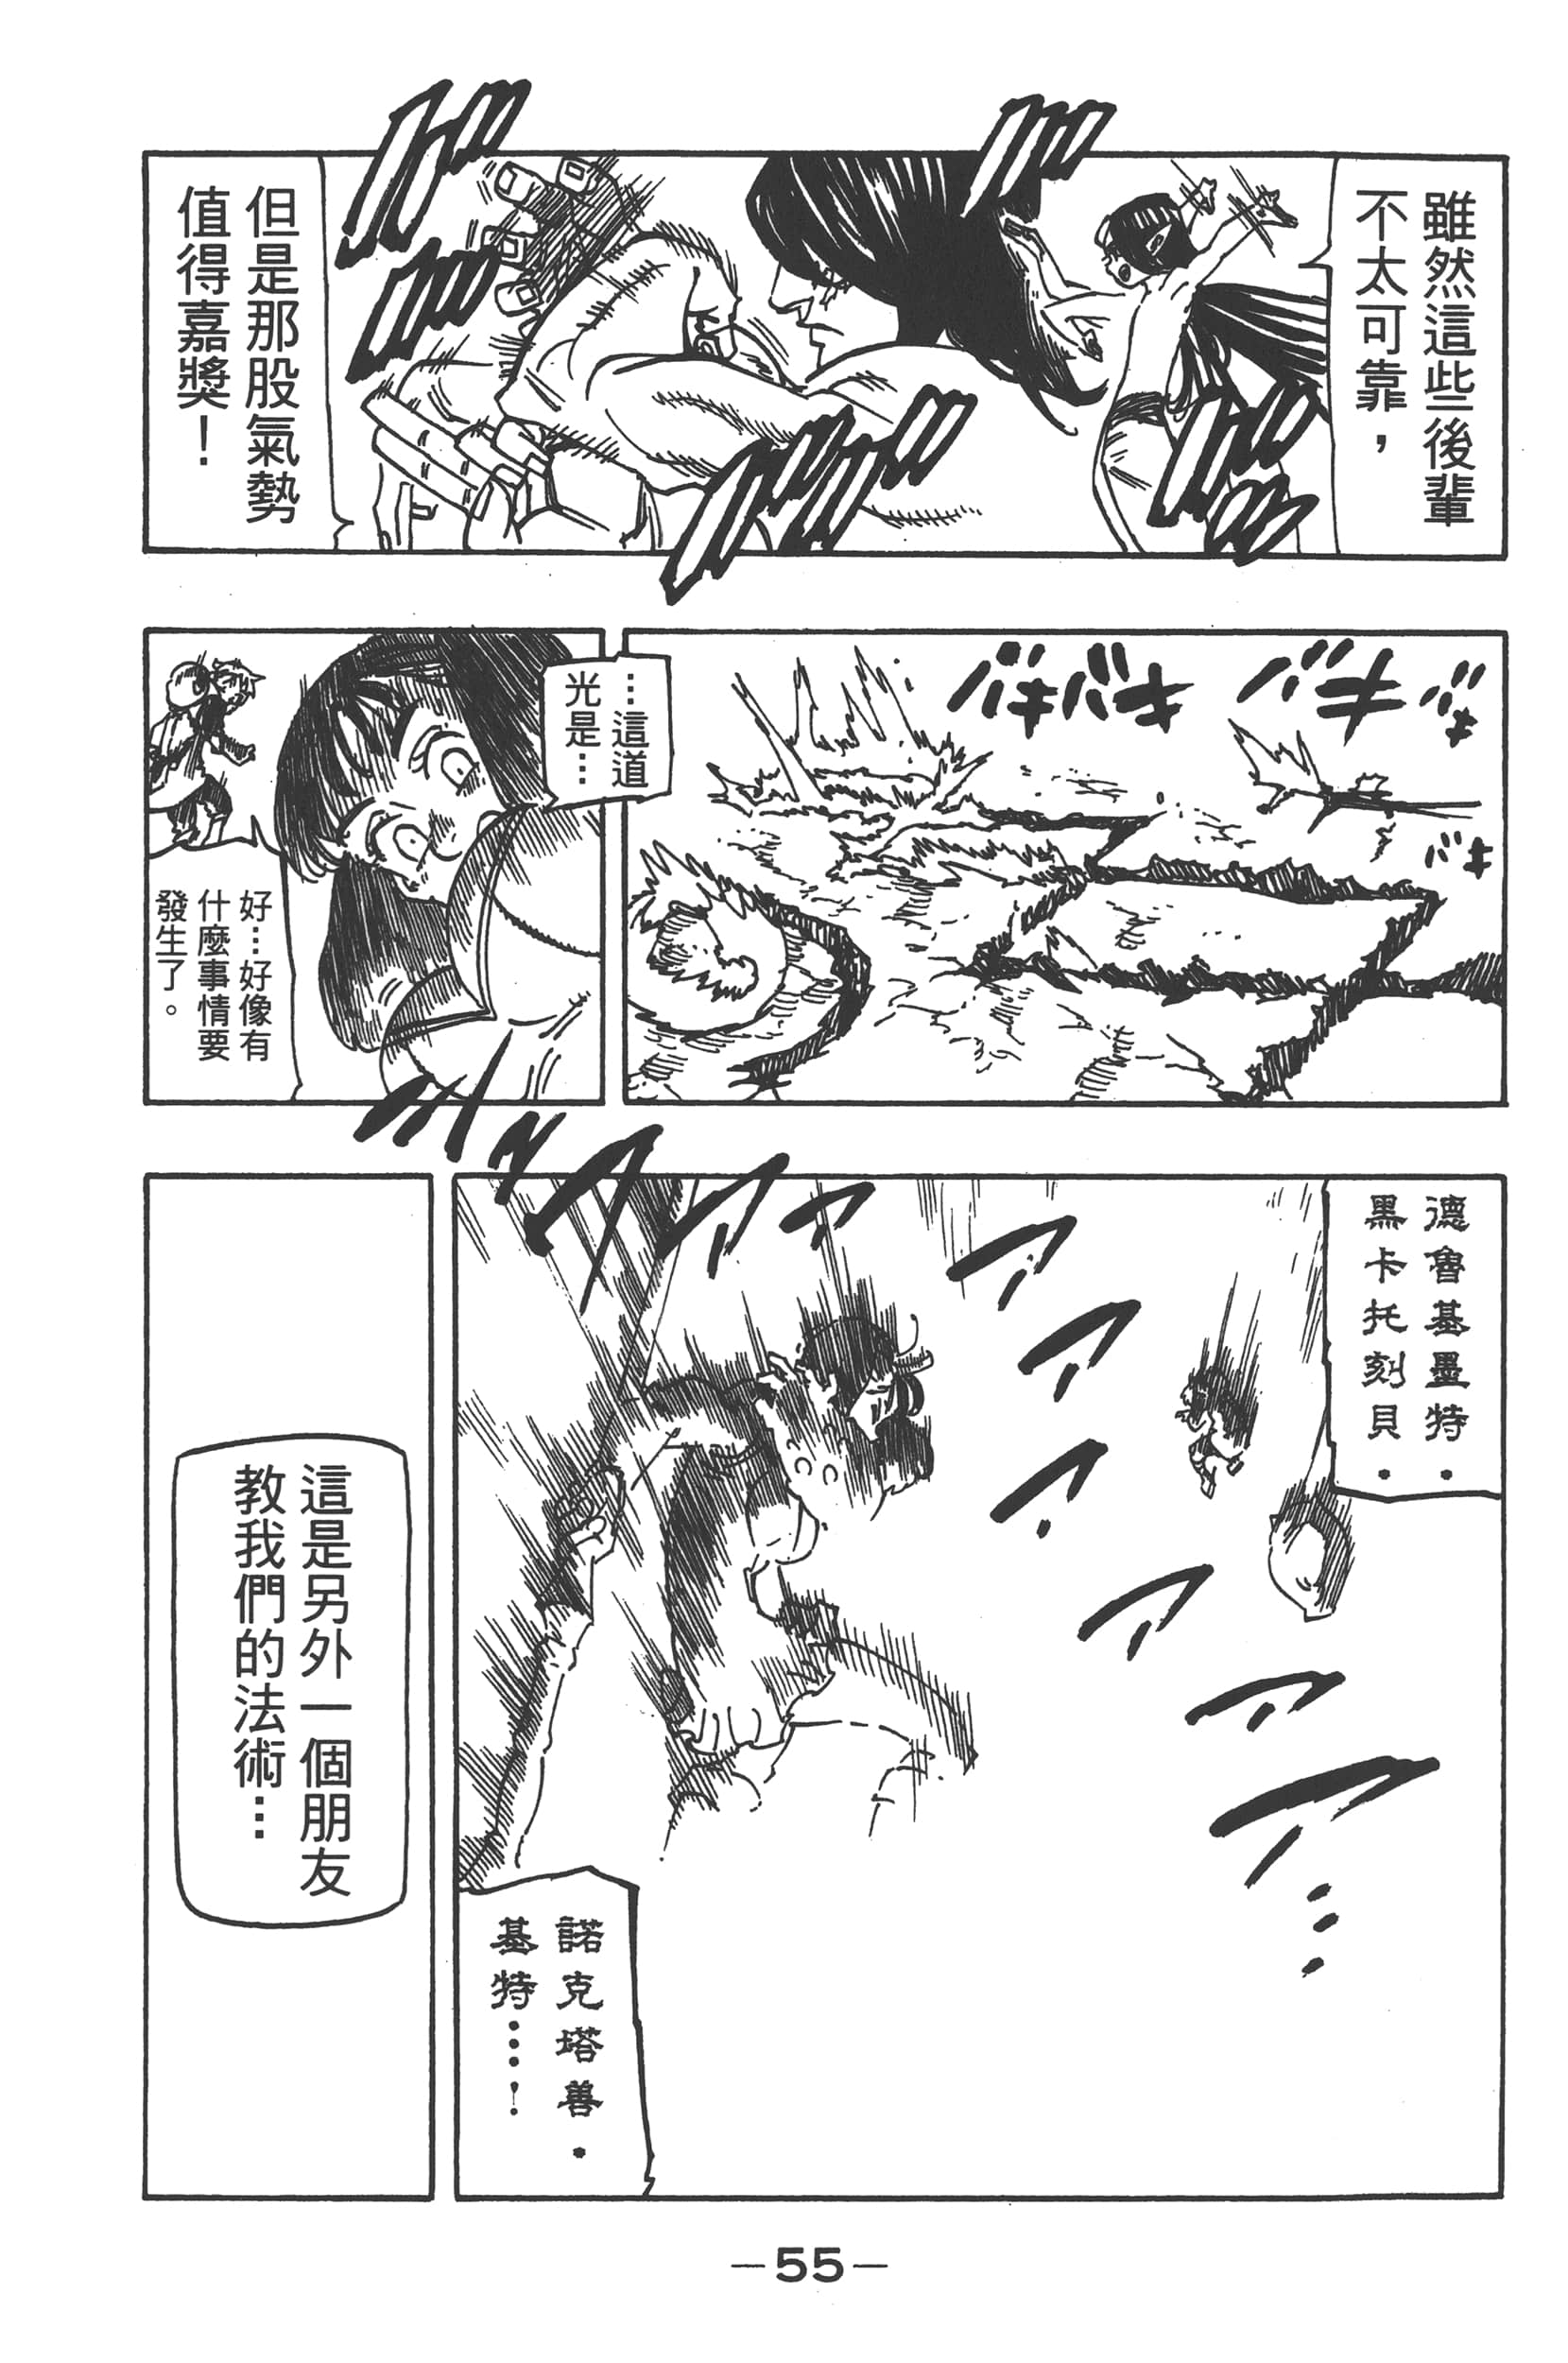 雖然這些後輩
不太可靠，
但是那股氣勢
值得嘉獎！
バキ
バキ
バキバキ
バキ
…這道
光是…
好…好像有
什麼事情要
發生了。
德魯基墨特・
黑卡托刻貝・
諾克塔善・
基特……！
這是另外一個朋友
教我們的法術…
—55—